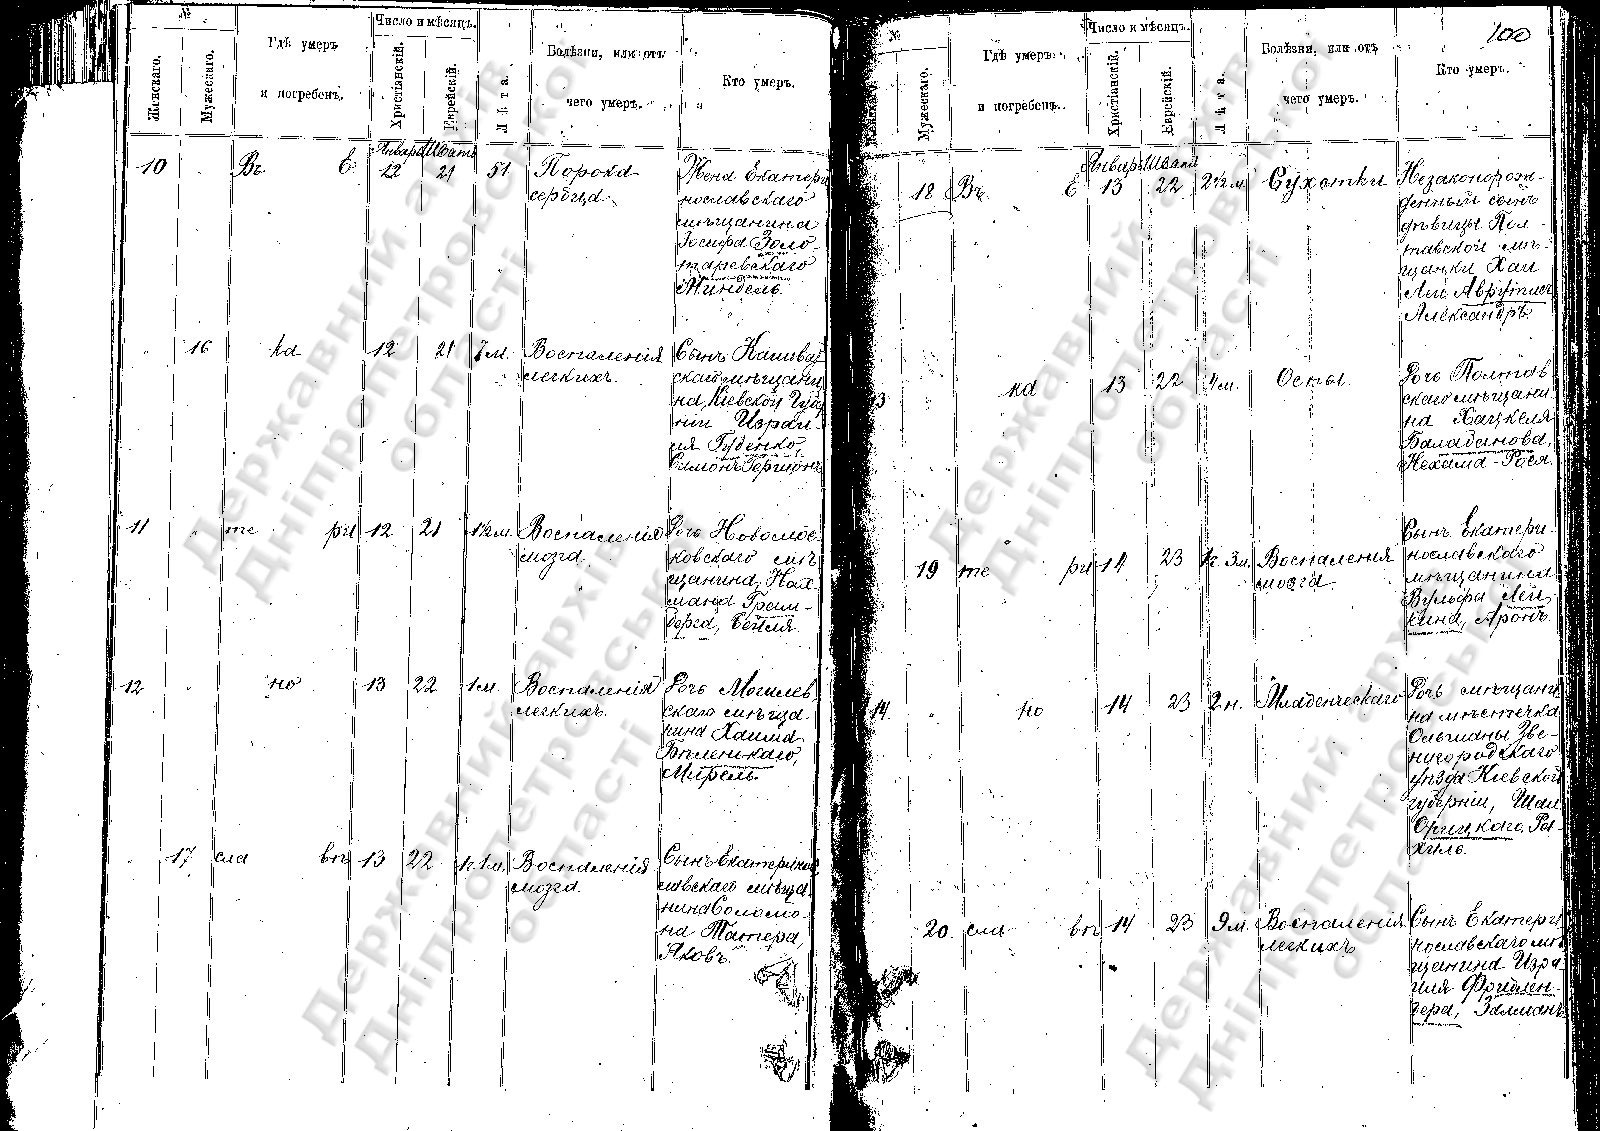 №
Женскаго.
Мужескаго.
Гдѣ умеръ
и погребенъ.
Число и мѣсяцъ.
Христіанскій.
Еврейскій.
Лѣта.
Болѣзни, или отъ
чего умеръ.
Кто умеръ.
Января Шватъ
10 Въ Е 12 21 51 Порока
сердца
Жена Екатери
нославскаго
мѣщанина
Іосифа Золо
таревскаго
Миндель
16 ка 12 21 7 м. Воспаленія
легкихъ.
Сынъ Канив
скаго мѣщани
на, Кіевской Губер
ніи Израи
ля Гуденко,
Симонъ Гершонъ
11 те ри 12 21 1½ м. Воспаленія
мозга.
Дочь Новомос
ковскаго мѣ
щанина, Нах
мана Грин
берга, Бейля.
12 но 13 22 1 м. Воспаленія
легкихъ.
Дочь Могилев
скаго мѣща
нина Хаима
Бѣленькаго,
Мирель.
17 сла вѣ 13 22 1 г. 1 м. Воспаленія
мозга.
Сынъ Екатерино
славскаго мѣща
нина Соломо
на Татера,
Яковъ.
100
№
Женскаго.
Мужескаго.
Гдѣ умеръ
и погребенъ.
Число и мѣсяцъ.
Христіанскій.
Еврейскій.
Лѣта.
Болѣзни, или отъ
чего умеръ.
Кто умеръ.
Январь Шватъ
18 Въ Е 13 22 2½ м. Сухотки
Незаконорож-
денный сынъ
дѣвицы Пол-
тавской мѣ-
щанки Хаи
Аврутисъ
Александръ.
13 ка 13 22 4 м. Оспы.
Дочь Полтав
скаго мѣщани
на Хацкеля
Балабанова,
Нехама-Рося.
19 те ри 14 23 1 г. 3 м. Воспаленія
мозга.
Сынъ Екатери-
нославскаго
мѣщанина
Вульфа Лей
кина, Аронъ.
14 но 14 23 2 н. Младенческаго
Дочь мѣщани
на мѣстечка
Ольшаны Зве-
нигородскаго
уѣзда Кіевской
губерніи, Шаи
Орицкаго, Ра-
хиль.
20 сла вѣ 14 23 9 м. Воспаленія
легкихъ
Сынъ Екатери
нославскаго мѣ
щанина Изра-
иля Фридлен-
дера, Залманъ
Державний архів
Дніпропетровської
області